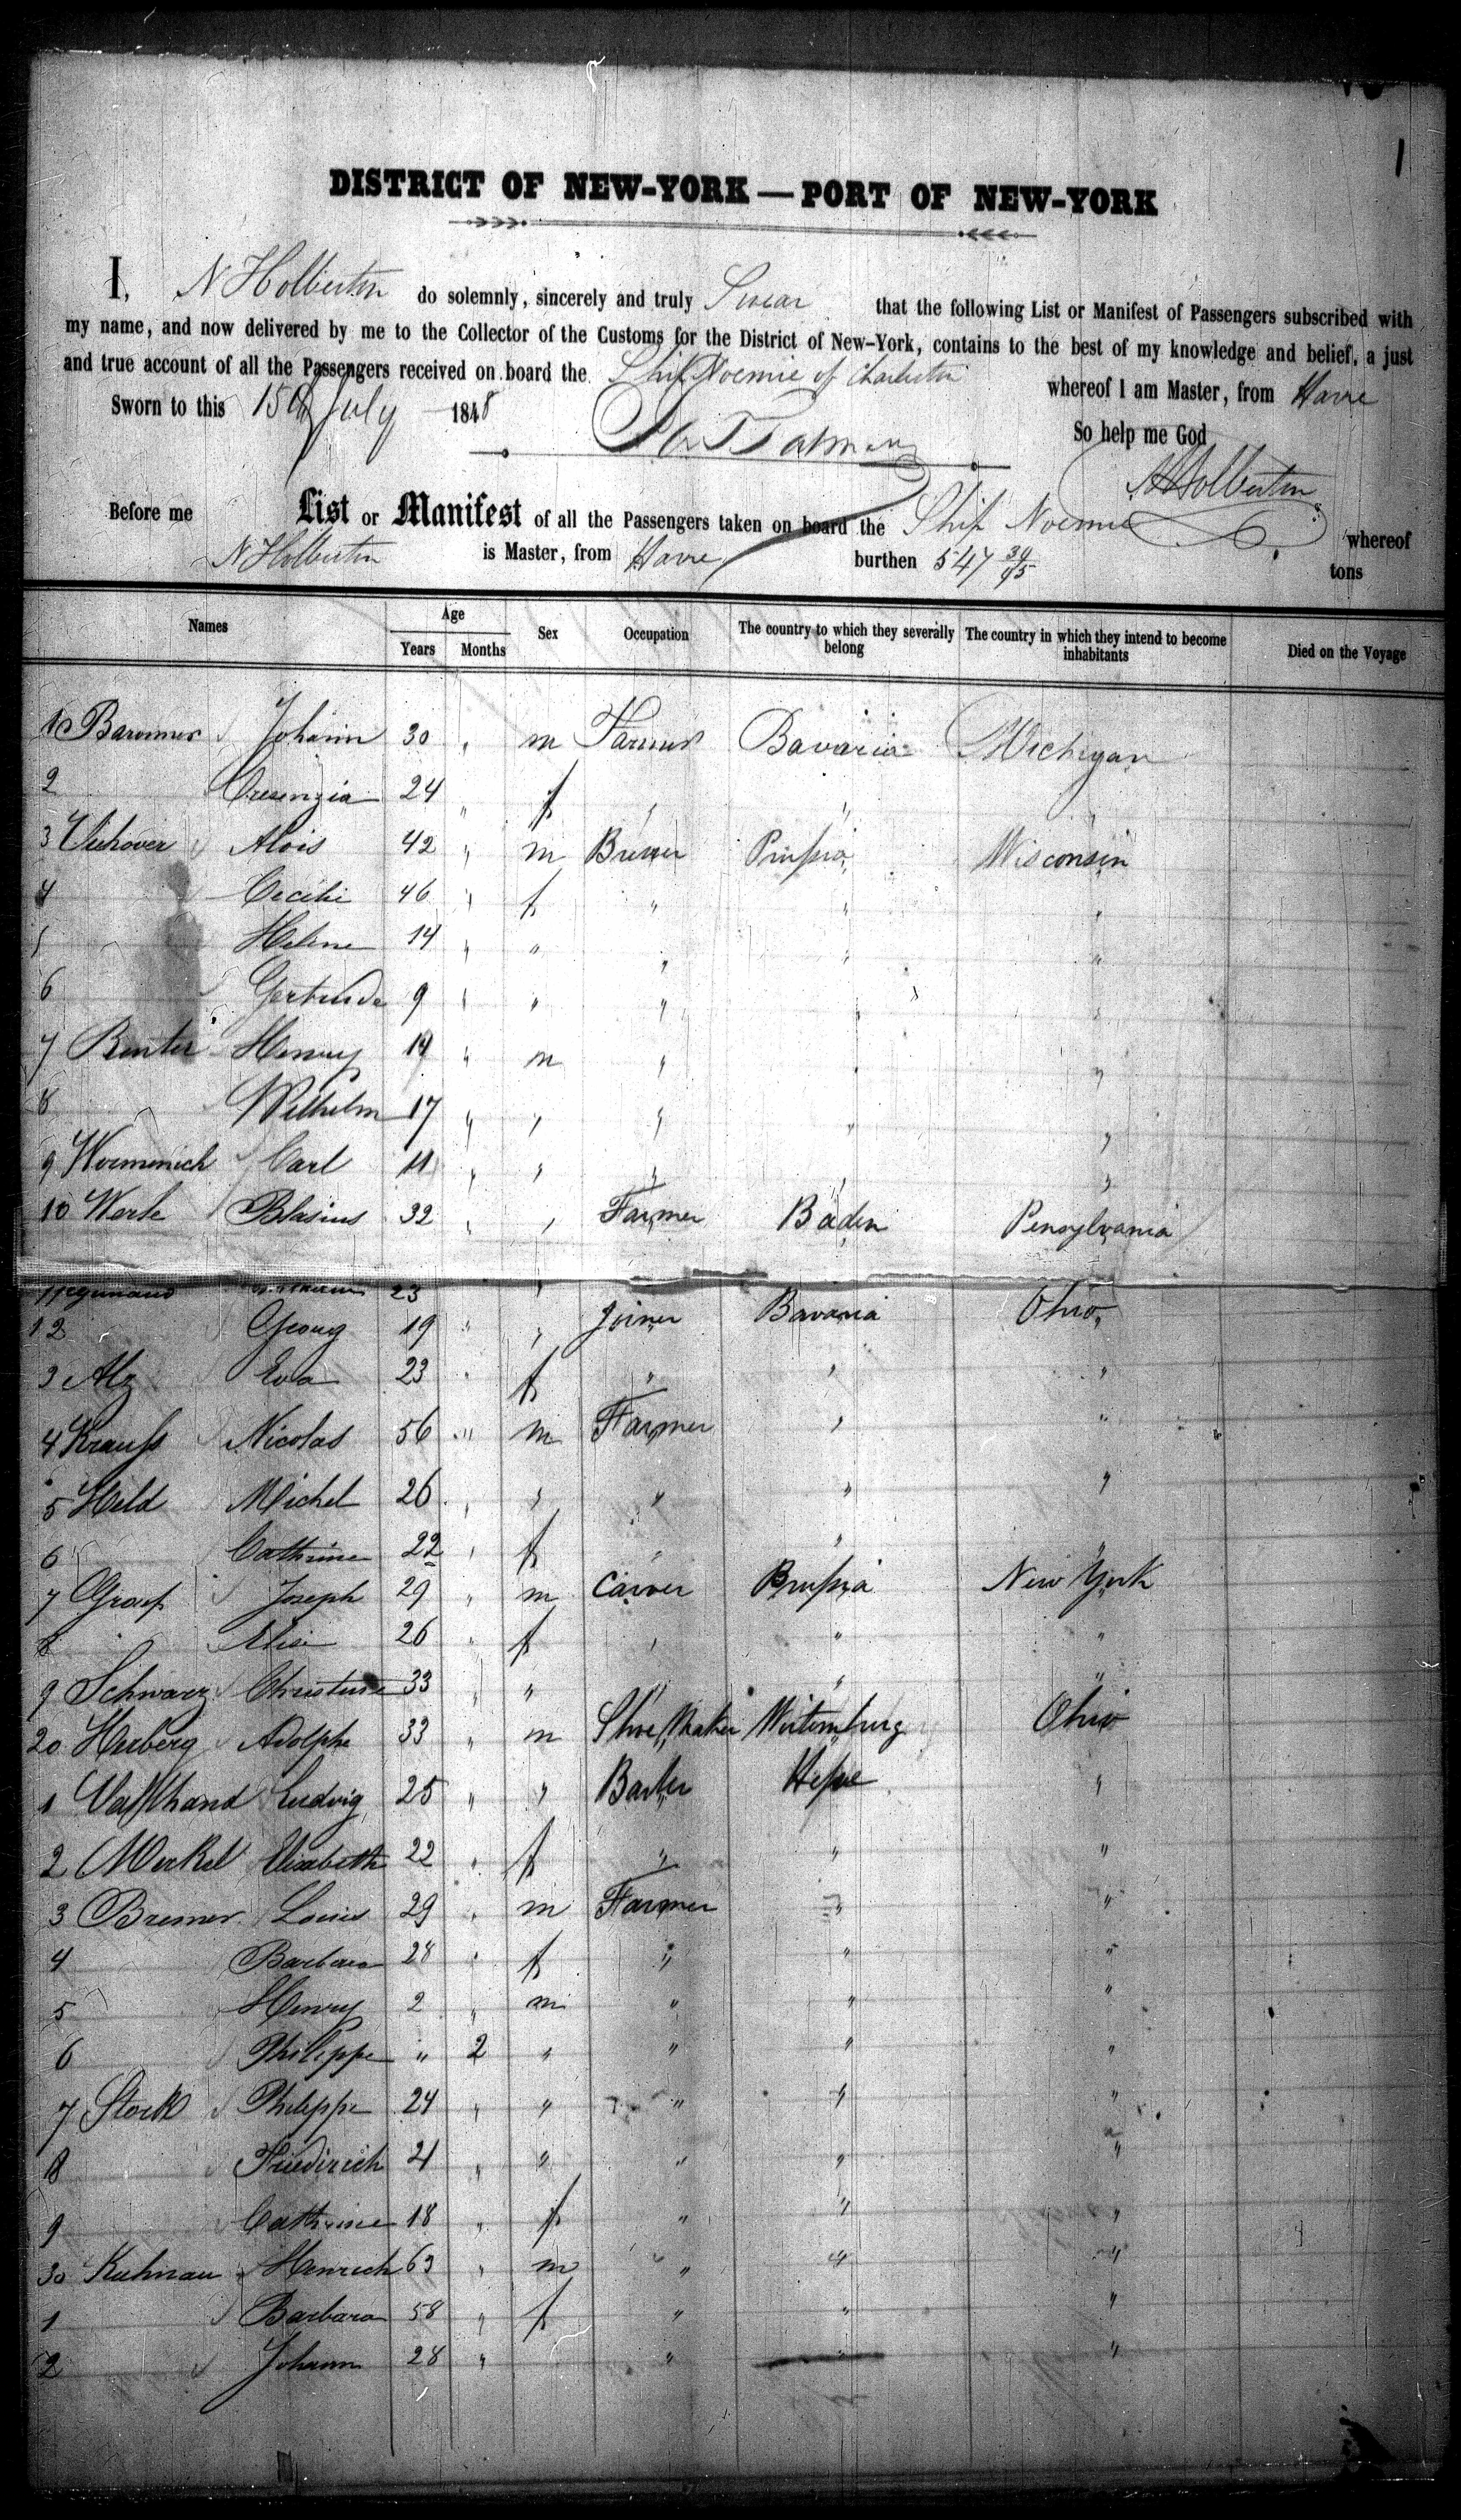 1
DISTRICT OF NEW-YORK — PORT OF NEW-YORK
I, N Holberton do solemnly, sincerely and truly Swear that the following List or Manifest of Passengers subscribed with
my name, and now delivered by me to the Collector of the Customs for the District of New-York, contains to the best of my knowledge and belief, a just
and true account of all the Passengers received on board the Ship Noemie of Charleston whereof I am Master, from Havre
Sworn to this 15th July 1848 So help me God
N Holberton
Before me List or Manifest of all the Passengers taken on board the Ship Noemie whereof
N Holberton is Master, from Havre burthen 547 34/95 tons
Names Age Sex Occupation The country to which they severally belong The country in which they intend to become inhabitants Died on the Voyage
Years Months
Johann 30 " m Farmer Bavaria Michigan
2 Cresenzia 24 " f " " "
3 Viehover Alois 42 " m Brewer Prussia Wisconsin
4 Cecili 46 " f " " "
5 Helene 14 " " " " "
6 Gertrude 9 " " " " "
7 Benter Henry 14 " m " " "
8 Wilhelm 17 " " " " "
9 Worminich Carl 11 " " " " "
10 Werle Blasius 32 " " Farmer Baden Pensylvania
11 23 "
12 Georg 19 " " Joiner Bavaria Ohio
3 Alz Eva 23 " f " " "
4 Krauss Nicolas 56 " m Farmer " "
5 Held Michel 26 " " " " "
6 Cathrine 22 " f " " "
7 Joseph 29 " m Carver Prussia New York
8 26 " f " " "
9 Schwarz Christine 33 " " " " "
20 Herberg Adolphe 33 " m Shoe Maker Wirtemburg Ohio
1 Ludvig 25 " " Hesse "
2 Merkel Elisabeth 22 " f " " "
3 Bremer Louis 29 " m Farmer " "
4 Barbara 28 " f " " "
5 Henry 2 " m " " "
6 Philippe " 2 " " " "
7 Stork Philippe 24 " " " " "
8 Friedirich 21 " " " " "
9 Cathrine 18 " f " " "
30 Kuhnau Henrich 63 " m " " "
1 Barbara 58 " f " " "
2 Johann 28 " " " "